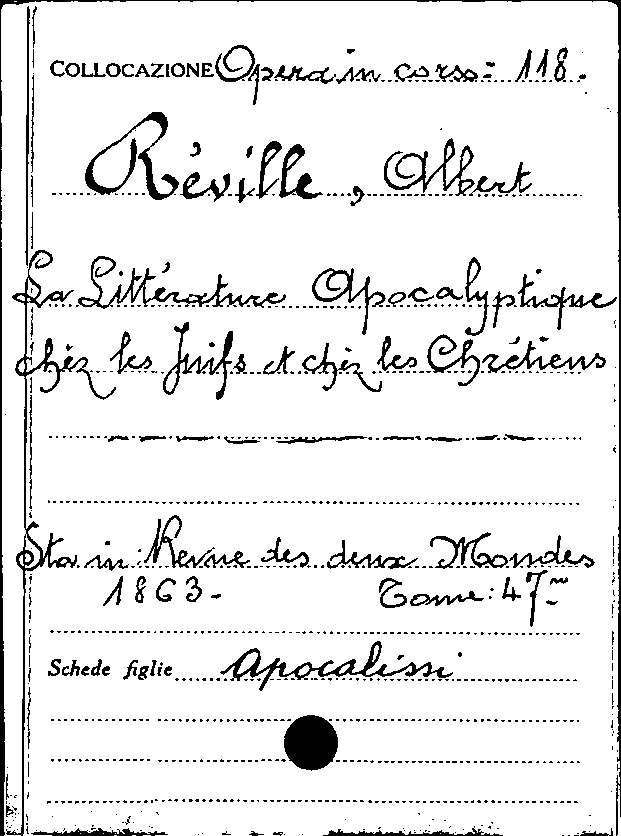 COLLOCAZIONE Opera in corso: 118.
Réville, Albert
La Littérature Apocalyptique
chèz les Juifs et chèz les Chrétiens
Sta in: Revue des deux Mondes
1863. Tome: 47.m
Schede figlie Apocalissi